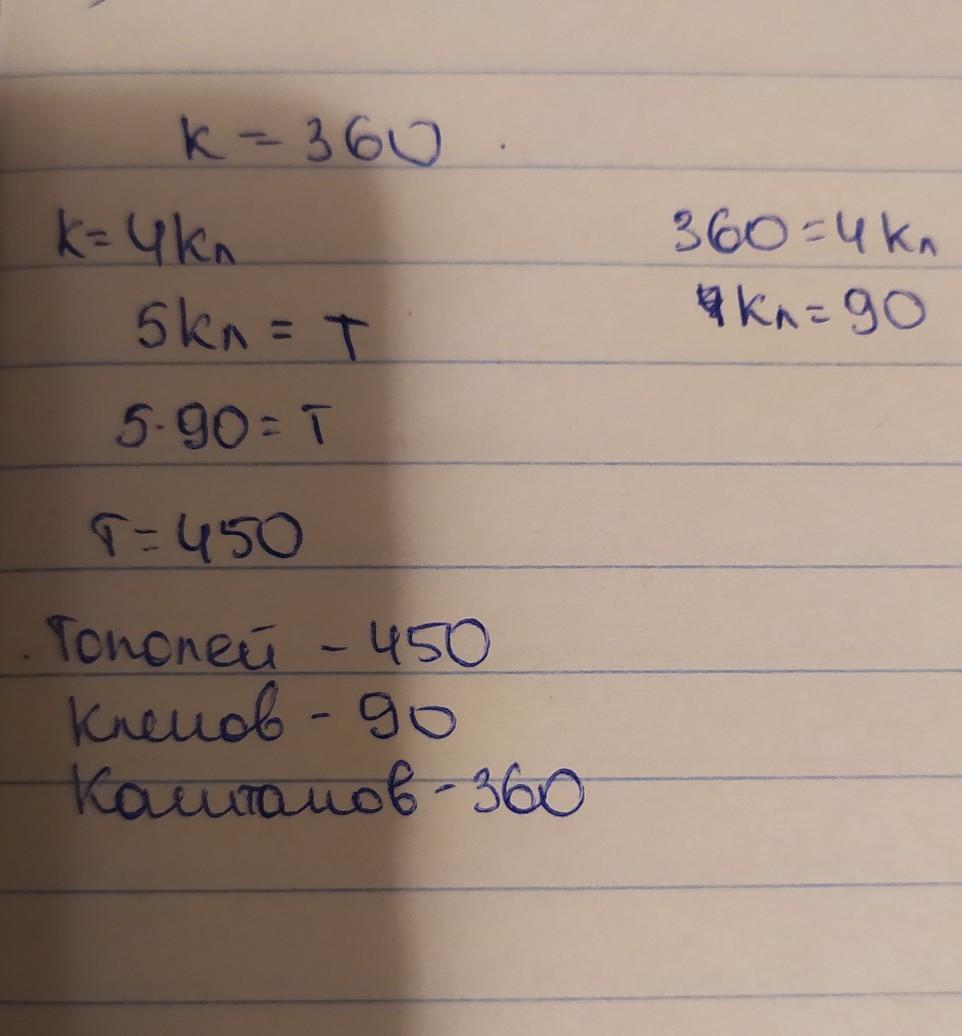 к = 360
к = 4кл
360 = 4кл
5кл = т
1кл = 90
5·90 = т
т = 450
Тополей - 450
Кленов - 90
Каштанов - 360